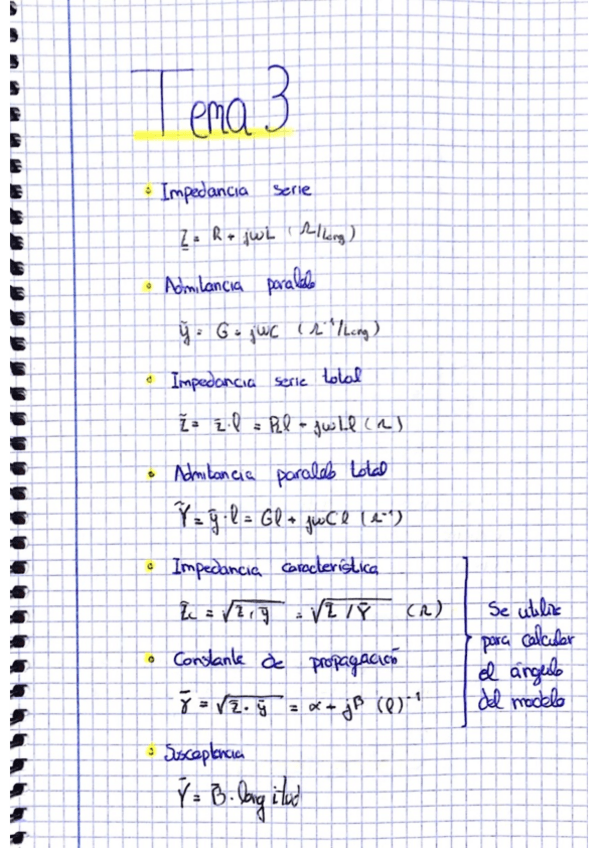 Tema 3
Impedancia serie
z̄ = R + jωL (Ω/Long)
Admitancia paralelo
ȳ = G + jωC (Ω⁻¹/Long)
Impedancia serie total
Z̄ = z̄·l = Rl + jωLl (Ω)
Admitancia paralelo total
Ȳ = ȳ·l = Gl + jωCl (Ω⁻¹)
Impedancia característica
Z̄c = √z̄/ȳ = √Z̄/Ȳ (Ω)
Constante de propagación
γ̄ = √z̄·ȳ = α + jβ (l)⁻¹
Se utiliza
para calcular
el ángulo
del modelo
Susceptancia
Ȳ = B·longitud